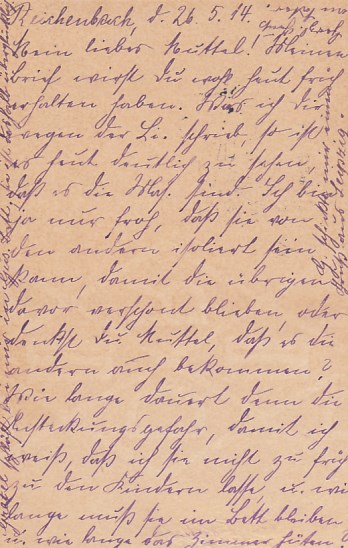 Reichenbach, d. 26.5.14.
Mein liebes Muttel! Meinen
Brief wirst Du wohl heut früh
erhalten haben. Was ich Dir
wegen der Li. schrieb, so ist
es heut deutlich zu sehen,
daß es die Mas. sind. Ich bin
ja nur froh, daß sie von
den andern isoliert sein
kann, damit die übrigen
davor verschont blieben, oder
denkst Du Muttel, daß es die
andern auch bekommen?
Wie lange dauert denn die
Ansteckungsgefahr, damit ich
weiß, daß ich sie nicht zu früh
zu den Kindern lasse, u. wie
lange muß sie im Bett bleiben
u. wie lange das Zimmer hüten?